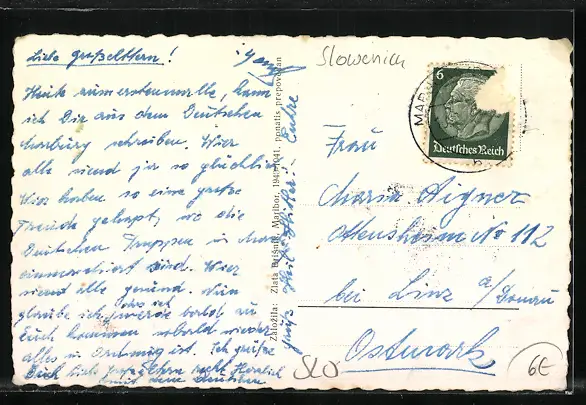 Liebe großeltern!
Heute zum erstenmalle, kann
ich Dir aus dem Deutschen
Marburg schreiben. Wier
alle sind ja so glücklich
Wier haben so eine große
Freude gehapt, wo die
Deutschen Truppen in Mar
einmarschiert sind. Wier
sind alle gesund. Nun
glaube ich, das ich werde bald zu
Euch kommen sobald wieder
alles in Ordnung ist. Ich grüße
Euch liebe großeltern recht Herzlich
mit dem deutschen
gruß Heil Hitler! Enkre
Založila: Zlata Brišnik, Maribor, 1940/1941. ponatis prepovedan
Slowenien
MAR
6
Deutsches Reich
b
Frau
Maria Aigner
Ottensheim No 112
bei Linz a/Donau
Ostmark
SLO
6€